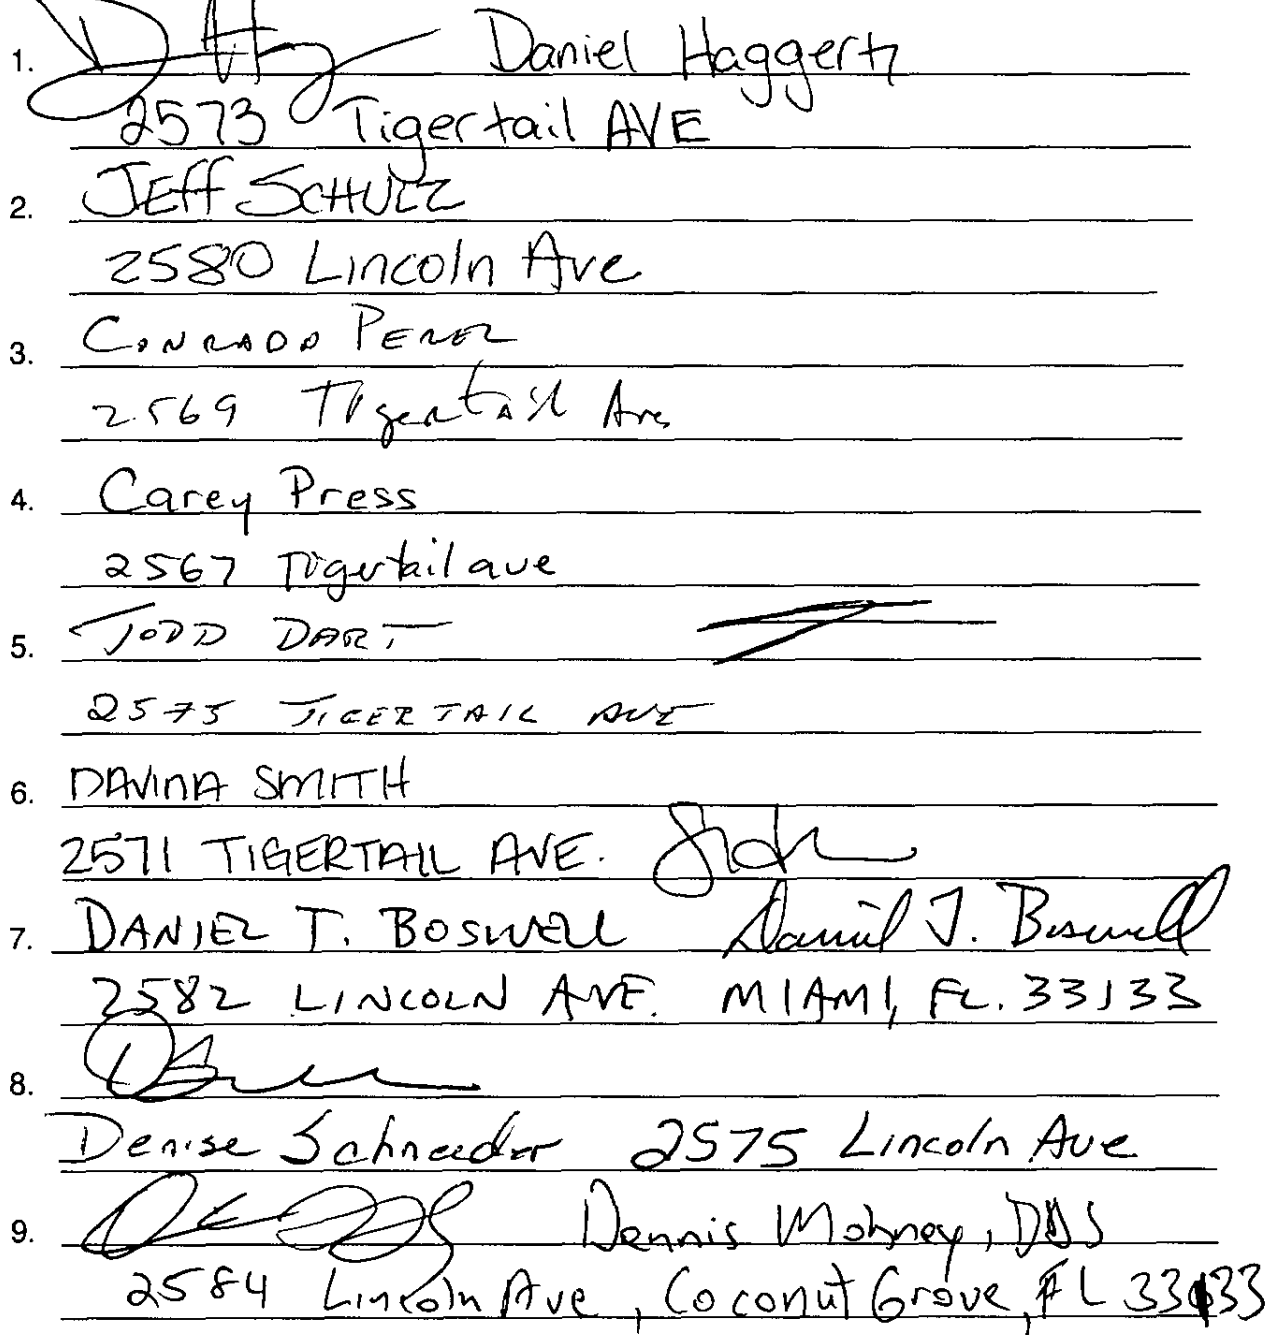 1. Daniel Haggerty
2573 Tigertail AVE
2. JEFF SCHULZ
2580 Lincoln Ave
3. CONRADO PEREZ
2569 Tigertail Ave
4. Carey Press
2567 Tigertail ave
5. TODD DART
2575 TIGERTAIL AVE
6. DAVINA SMITH
2571 TIGERTAIL AVE.
7. DANIEL T. BOSWELL Daniel T. Boswell
2582 LINCOLN AVE. MIAMI, FL. 33133
8.
Denise Schneider 2575 Lincoln Ave
9. Dennis Mohney, DDS
2584 Lincoln Ave, Coconut Grove, FL 33133